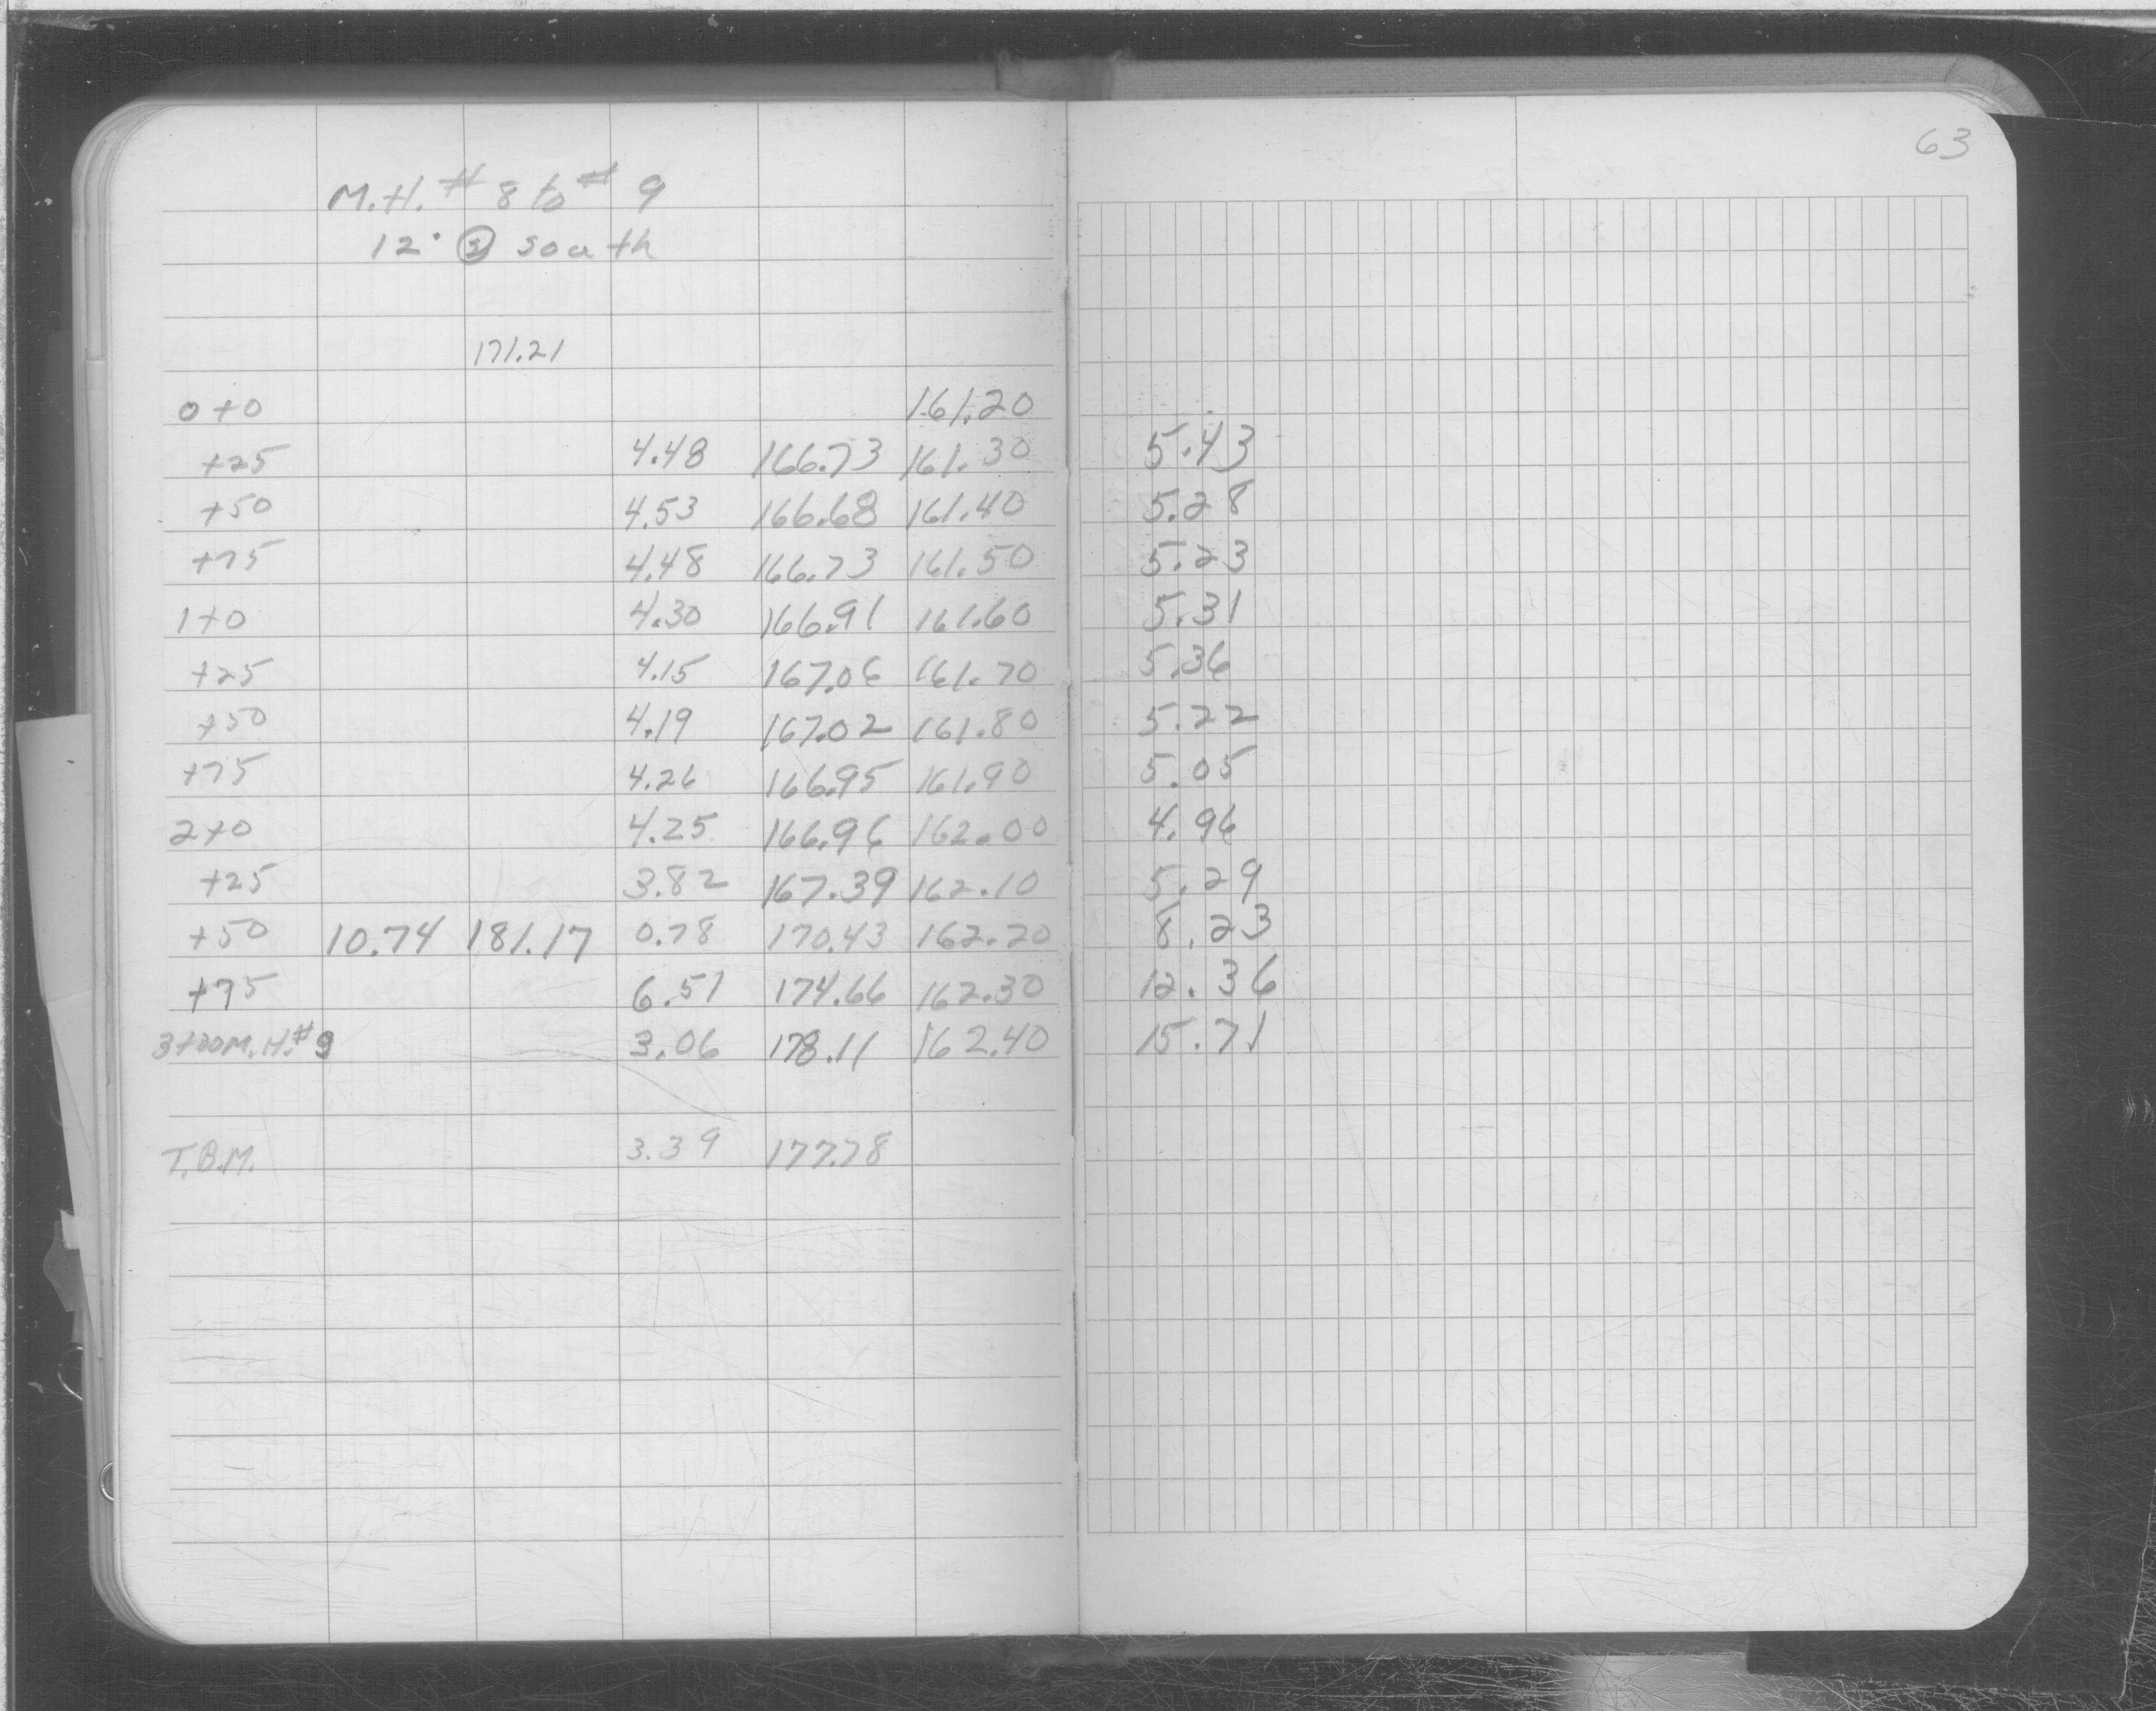 63
M.H. # 8 to # 9
12" Ⓢ south
171.21
0+0 161.20
+25 4.48 166.73 161.30 5.43
+50 4.53 166.68 161.40 5.28
+75 4.48 166.73 161.50 5.23
1+0 4.30 166.91 161.60 5.31
+25 4.15 167.06 161.70 5.36
+50 4.19 167.02 161.80 5.22
+75 4.26 166.95 161.90 5.05
2+0 4.25 166.96 162.00 4.96
+25 3.82 167.39 162.10 5.29
+50 10.74 181.17 0.78 170.43 162.20 8.23
+75 6.51 174.66 162.30 12.36
3+00 M.H.#9 3.06 178.11 162.40 15.71
T.B.M. 3.39 177.78